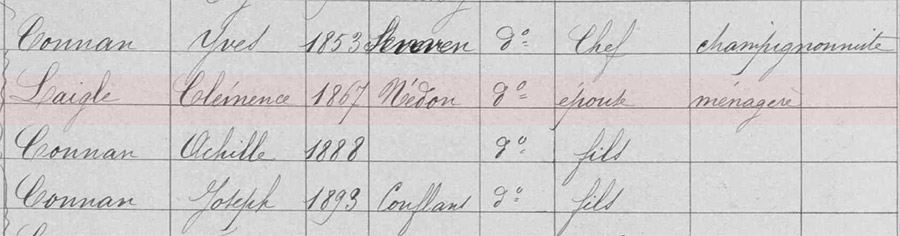 Connan Yves 1853 Senven do= Chef champignonniste
Laigle Clémence 1867 Nédon do= épouse ménagère
Connan Achille 1888 do= fils
Connan Joseph 1893 Conflans do= fils